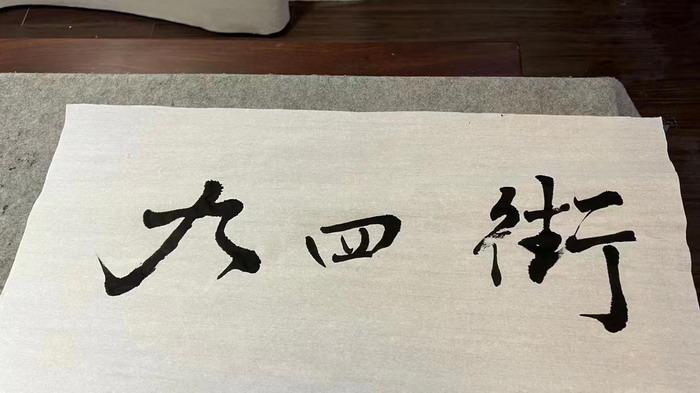 九四街